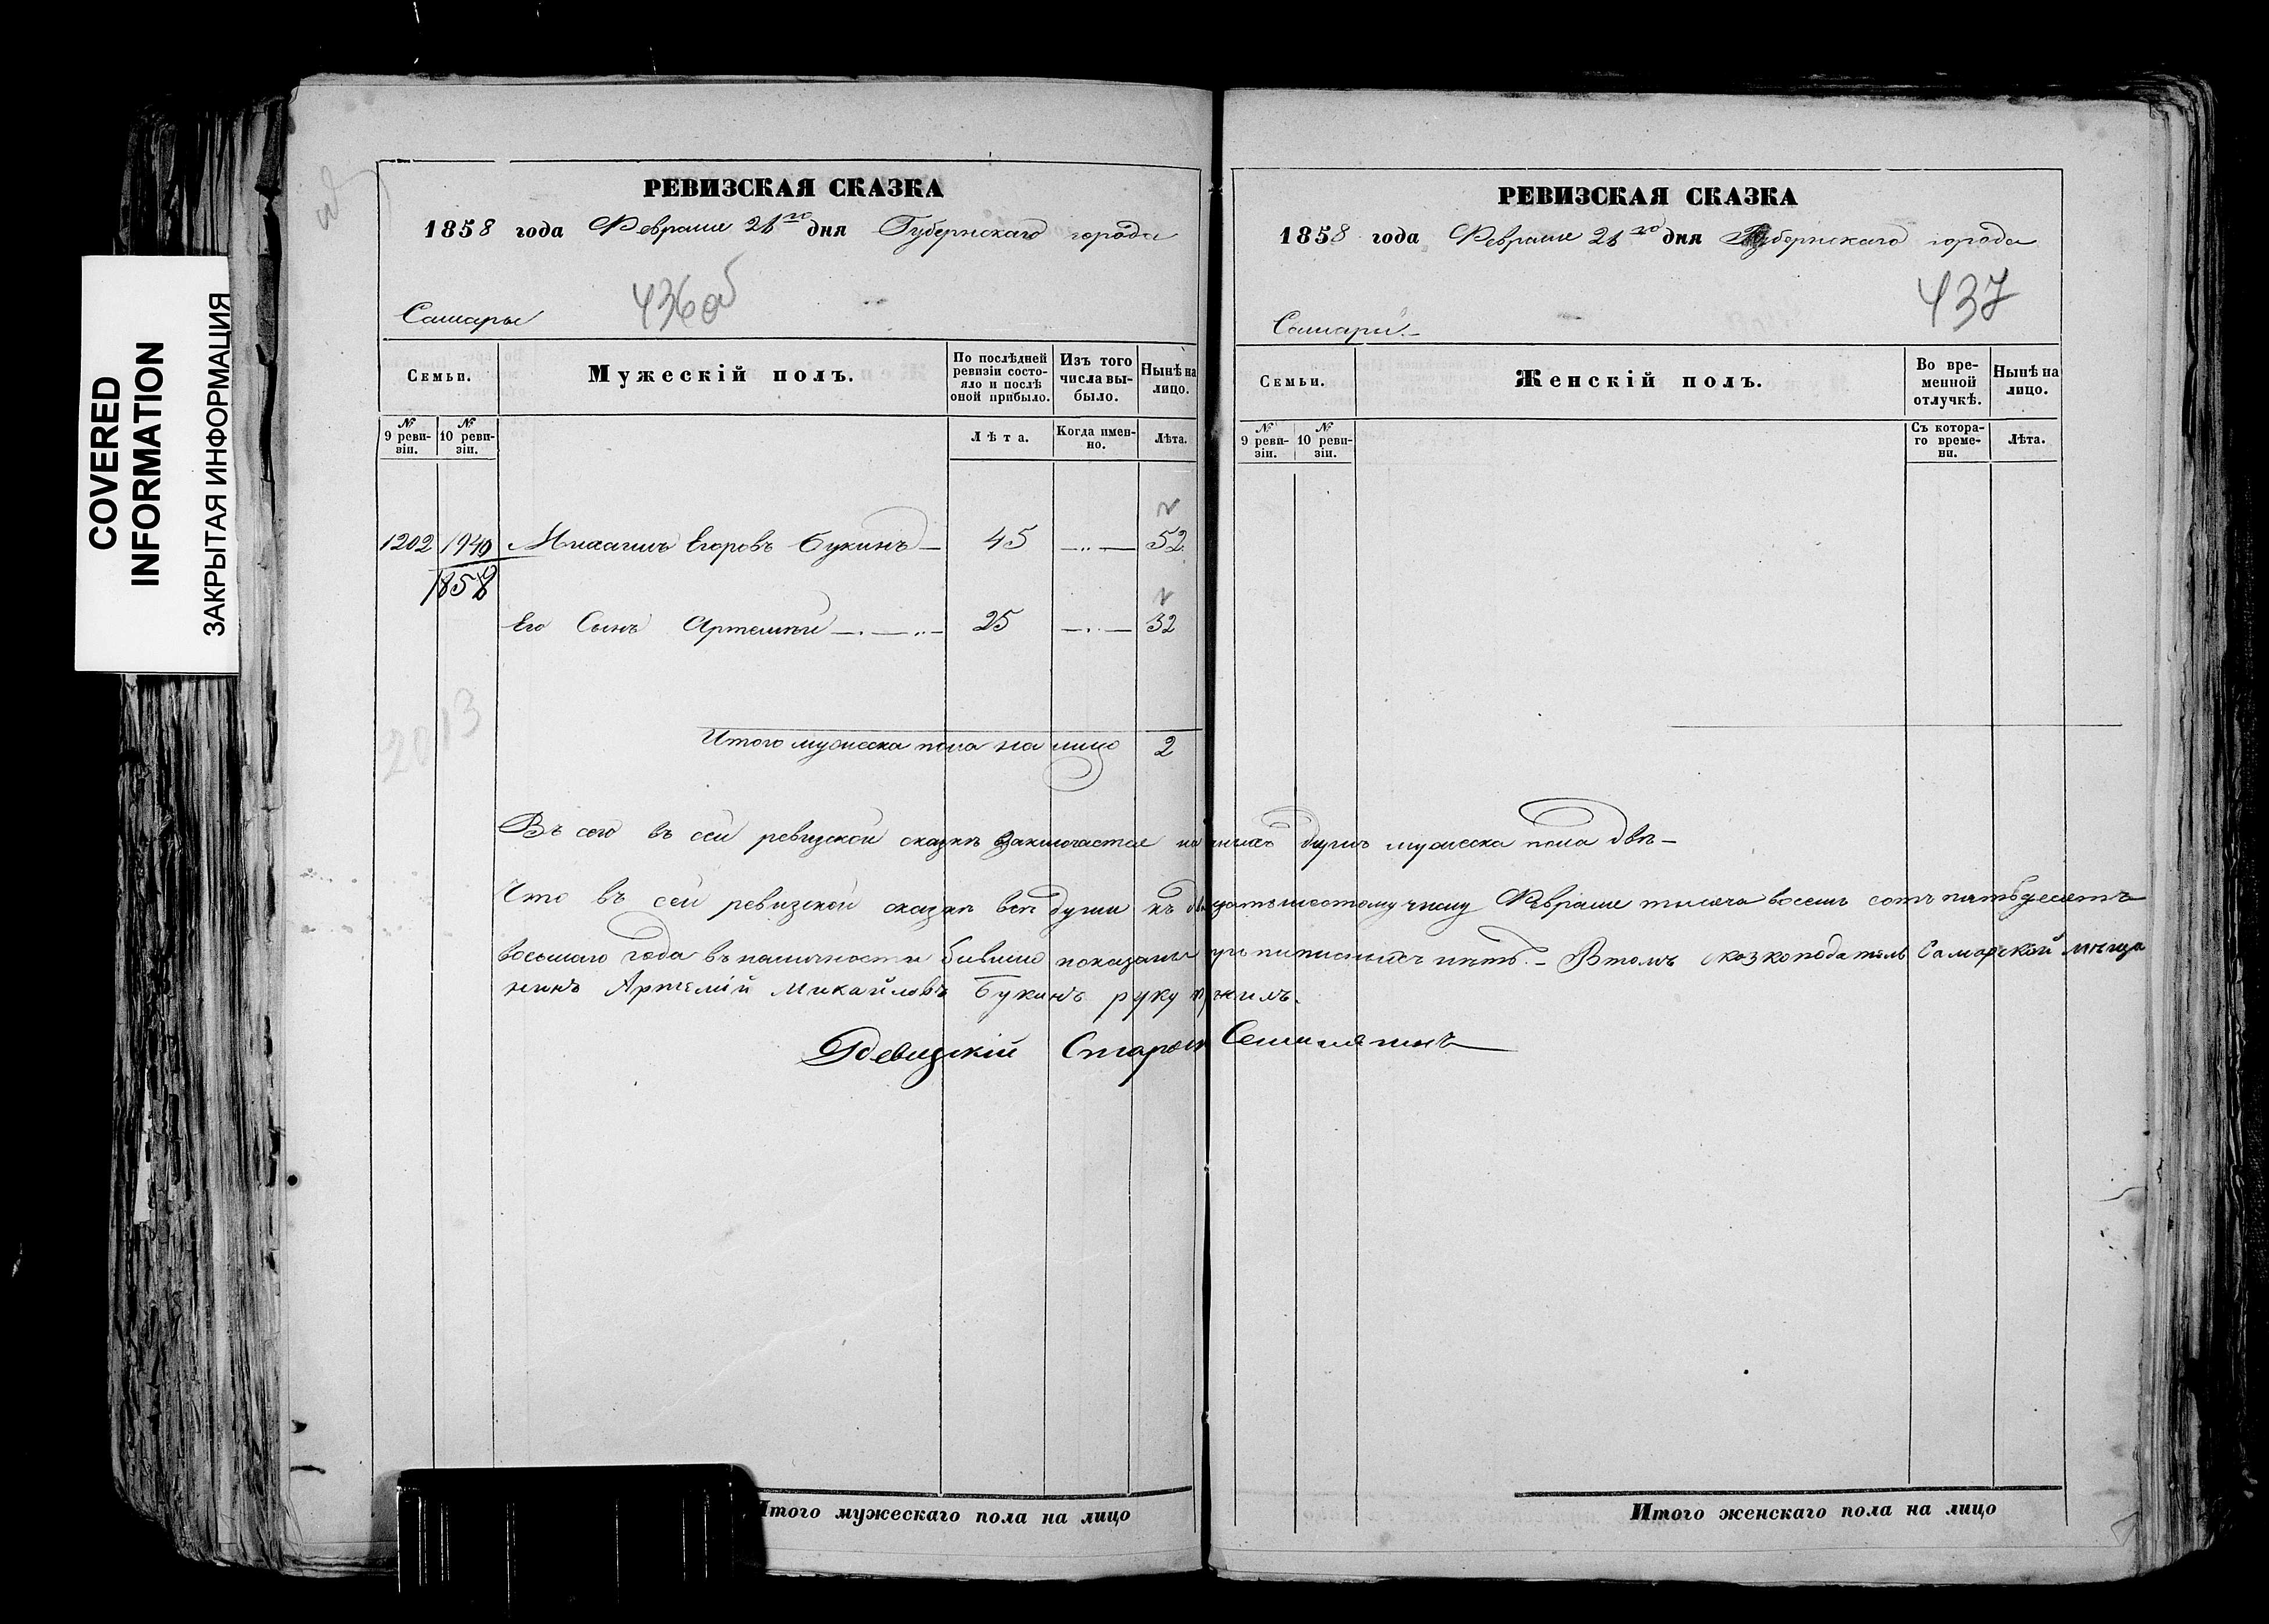 COVERED
INFORMATION
ЗАКРЫТАЯ ИНФОРМАЦИЯ
РЕВИЗСКАЯ СКАЗКА
1858 года Февраля 26го дня Губернскаго города
436об
Самары
Семьи.
Мужескій полъ.
По послѣдней ревизіи состояло и послѣ оной прибыло.
Изъ того числа выбыло.
Нынѣ на лицо.
№ 9 ревизіи.
№ 10 ревизіи.
Лѣта.
Когда именно.
Лѣта.
1202 1940 Михаилъ Егоровъ Букинъ 45 52
1858
Его Сынъ Артемій 25 32
2013
Итого мужеска пола на лицо 2
РЕВИЗСКАЯ СКАЗКА
1858 года Февраля 26го дня Губернскаго города
437
Самары
Семьи.
Женскій полъ.
Во временной отлучкѣ.
Нынѣ на лицо.
№ 9 ревизіи.
№ 10 ревизіи.
Съ котораго времени.
Лѣта.
Въ сего въ сей ревизской сказкѣ заключается наличныхъ душъ мужеска пола двѣ
Что въ сей ревизской сказкѣ всѣ души къ двадцатьшестому числу Февраля тысяча восемь сотъ пятьдесятъ
восьмаго года въ наличности бывшие показаны прописныхъ нѣтъ. Втомъ сказкоподатель Самарской мѣща
нинъ Артемій Михайловъ Букинъ руку
Ревизскій Староста
Итого мужескаго пола на лицо
Итого женскаго пола на лицо